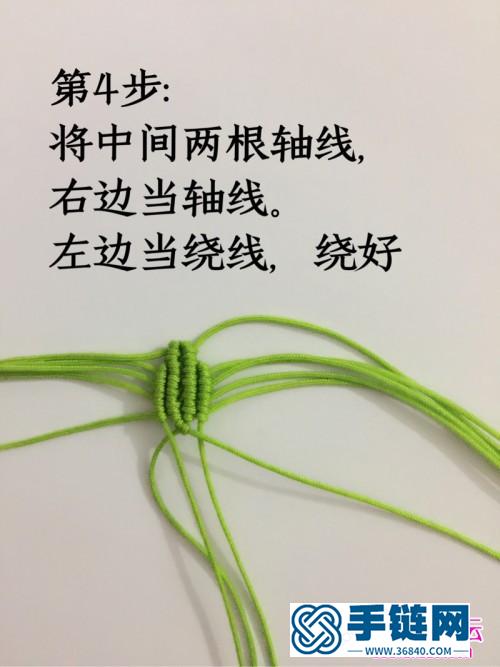 第4步:
将中间两根轴线,
右边当轴线。
左边当绕线, 绕好
手链网
www.36840.com